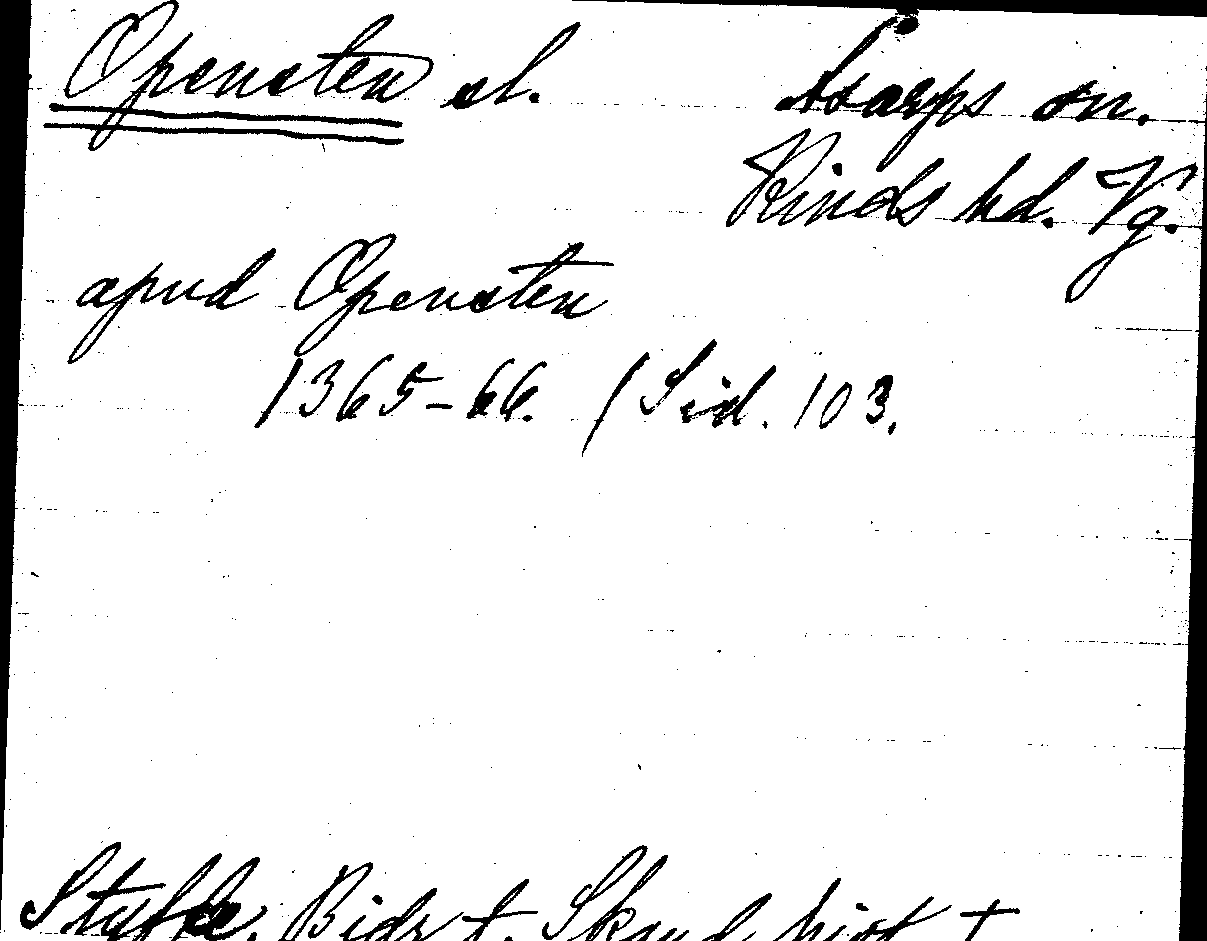 Opensten sl. Åsarps sn.
Kinds hd. Vg.
apud Opensten
1365-66. (Sid. 103.
Styffe, Bidr t. Skand. hist I